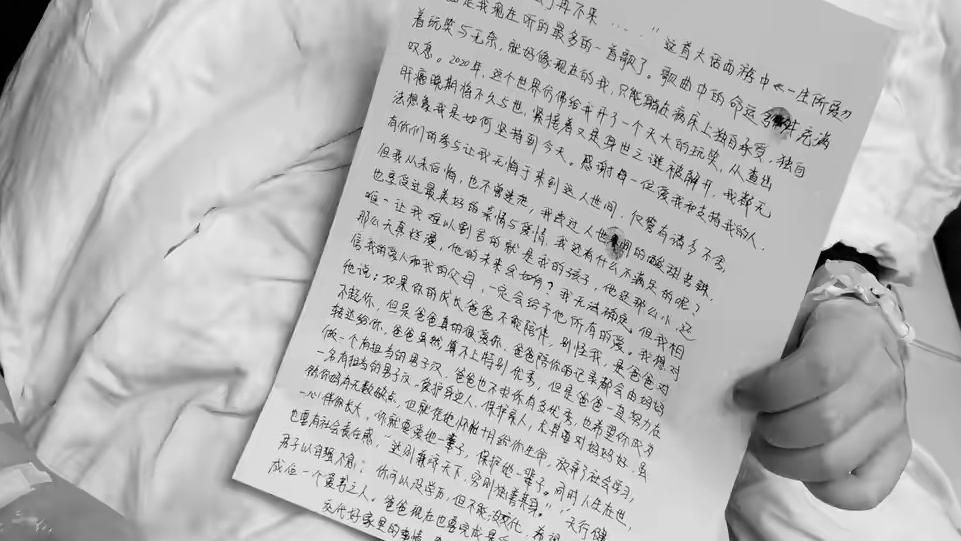 是我现在听的最多的一首歌了。歌曲中的命运多舛
这首大话西游中《一生所爱》
着玩笑与无奈,就好像现在的我,只能躺在病床上独自承受,独自
叹息。2020年,这个世界仿佛给我开了一个天大的玩笑,从查出
肝癌晚期将不久与世,紧接着又是身世之谜被解开,我都无
法想象我是如何坚持到今天。感谢每一位爱我和支持我的人,
有你们的参与让我无悔于来到这人世间,仅管有诸多不舍,
但我从未后悔,也不曾迷茫,我尝过人世间的酸甜苦辣,
也享受过最美好的亲情与爱情,我还有什么不满足的呢?
唯一让我难以割舍的就是我的孩子,他还那么小,还
那么天真烂漫,他的未来会如何?我无法确定,但我相
信我的爱人和我的父母,一定会给予他所有的爱。我想对
他说:如果你的成长爸爸不能陪伴,别怪我,是爸爸对
不起你,但是爸爸真的很爱你,爸爸陪你的记录都会由妈妈
转达给你,爸爸虽然算不上特别优秀,但是爸爸一直努力在
做一个有担当的男子汉,爸爸也不求你有多优秀,也希望你成为
一名有担当的男子汉。爱护身边人,保护亲人,尤其要对妈妈好,虽
然妈妈有无数缺点,但就凭她怀胎十月给你生命,放弃了社会学习,
一心伴你长大,你就要爱她一辈子,保护她一辈子。同时人生在世,
也要有社会责任感,“达则兼济天下,穷则独善其身”,“天行健,
君子以自强不息”;你可以没学历,但不能没文化,希望
成佰一个爱书之人。爸爸现在也要完成最后
交代好家里的事情